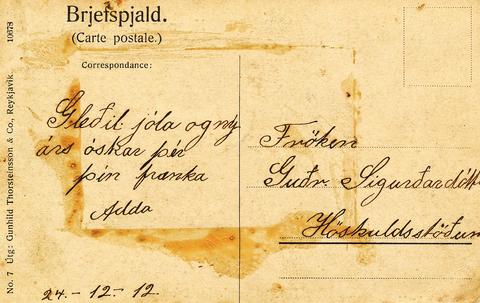 Brjefspjald.
(Carte postale.)
Correspondance:
Gleðil. jóla og ný
árs óskar þér
þín frænka
Adda
24.-12-12
Fröken
Guðr. Sigurðardótt
Höskuldsstöðum
No. 7 Útg: Gunhild Thorsteinsson & Co., Reykjavik. 10678